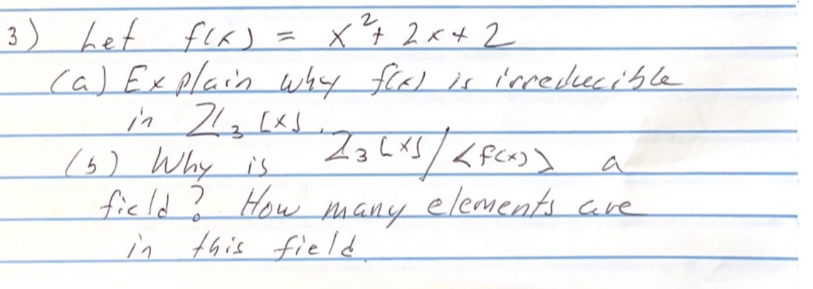 3) Let f(x) = x²+ 2x+2
(a) Explain why f(x) is irreducible
in ℤ₃[x].
(b) Why is ℤ₃[x]/<f(x)> a
field? How many elements are
in this field